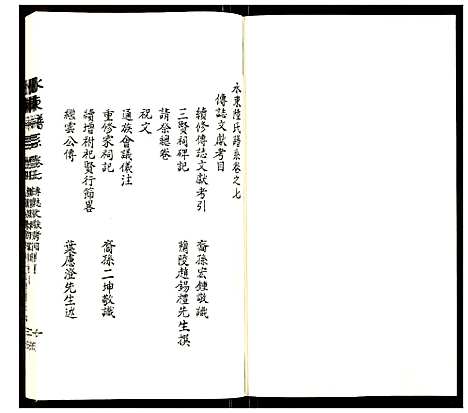 永東陸氏譜系卷之七
傳誌文獻考目
續修傳誌文獻考引　裔孫宏鍾敬識
三賢祠碑記　蘭陵趙錫禮先生撰
請祭總卷
祝文
通族會議儀注
重修家祠記　裔孫二坤敬識
續增樹祀賢行節畧
繼雲公傳　葉慮澄先生述